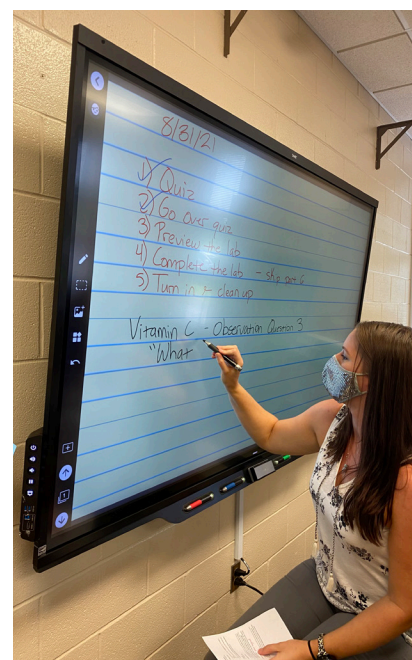 8/31/21
1) Quiz
2) Go over quiz
3) Preview the lab
4) Complete the lab - skip part 6
5) Turn in + clean up
Vitamin C - Observation Question 3
"What